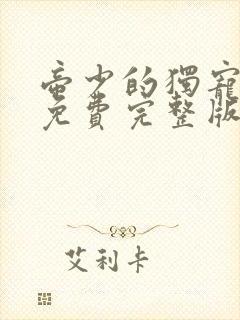 帝少的獨寵
免費完整版
艾利卡